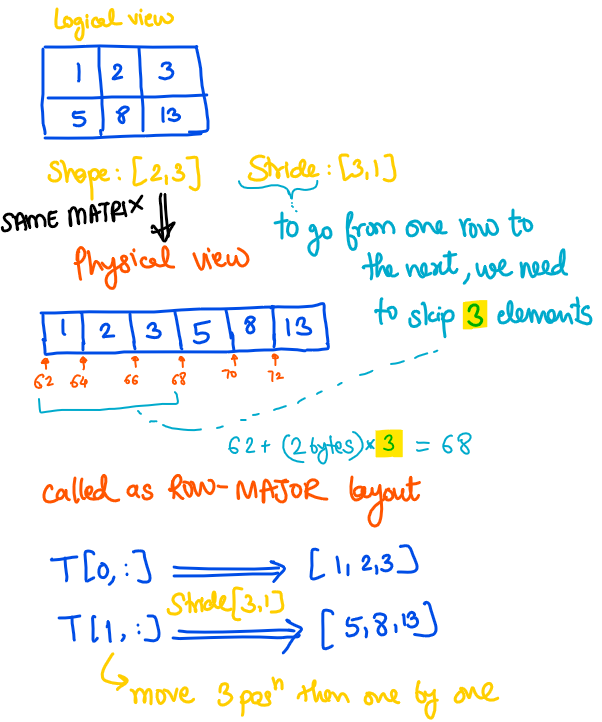 Logical view
1 2 3
5 8 13
Shape: [2,3] Stride: [3,1]
SAME MATRIX
to go from one row to
the next, we need
to skip 3 elements
Physical view
1 2 3 5 8 13
62 64 66 68 70 72
62 + (2 bytes) × 3 = 68
called as ROW-MAJOR layout
T[0,:] [1,2,3]
Stride[3,1]
T[1,:] [5,8,13]
move 3 posⁿ then one by one